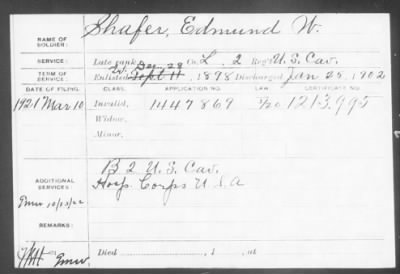 NAME OF SOLDIER: Shafer, Edmund W.
SERVICE: Late rank, Co. L. 2 Reg't U.S. Cav.
TERM OF SERVICE: Enlisted Sept 11, 1898 Discharged Jan 28, 1902
DATE OF FILING. CLASS. APPLICATION NO. LAW. CERTIFICATE NO.
1921 Mar 10 Invalid, 1447869 1213,995
Widow,
Minor,
ADDITIONAL SERVICES: B 2 U.S. Cav.
Hosp. Corps U S A
REMARKS:
Died , 1 , at